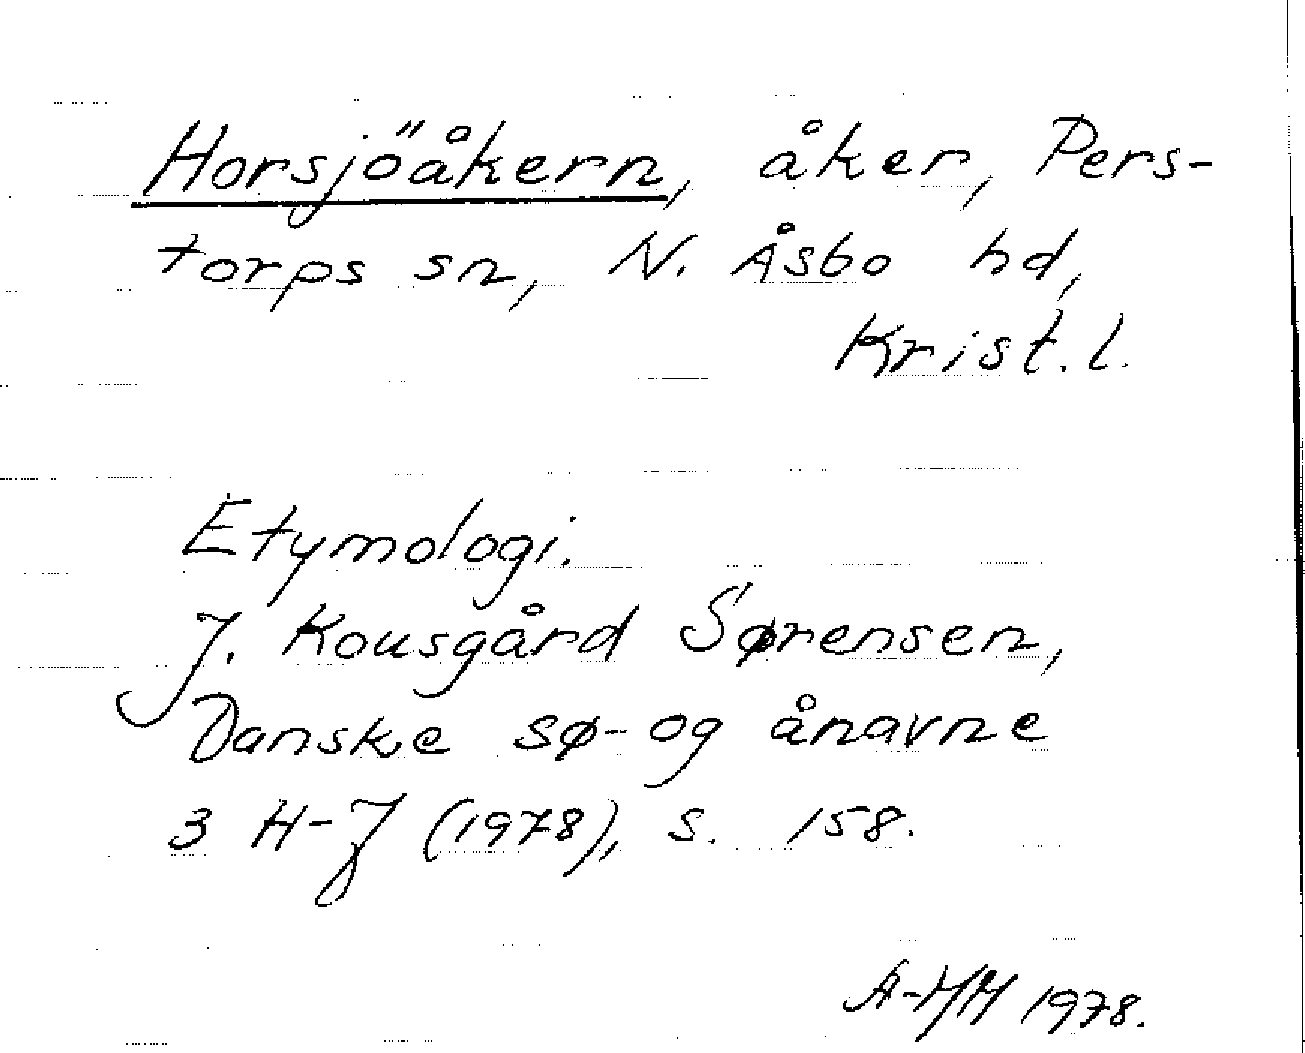 Horsjöåkern, åker, Pers-
torps sn, N. Åsbo hd,
Krist. l.
Etymologi.
J. Kousgård Sørensen,
Danske sø- og ånavne
3 H-J (1978), s. 158.
A-HM 1978.